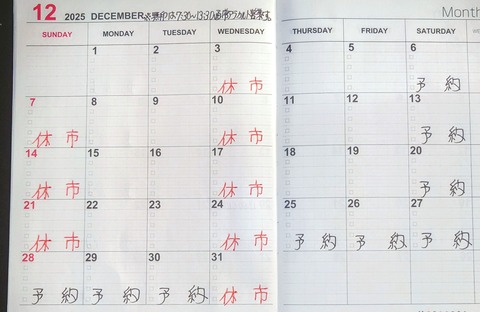 12 2025 DECEMBER ※無印は7:30~13:30 Month
SUNDAY MONDAY TUESDAY WEDNESDAY THURSDAY FRIDAY SATURDAY
1 2 3 4 5 6
休市 予約
7 8 9 10 11 12 13
休市 休市 予約
14 15 16 17 18 19 20
休市 休市 予約
21 22 23 24 25 26 27
休市 休市 予約 予約 予約
28 29 30 31
予約 予約 予約 休市